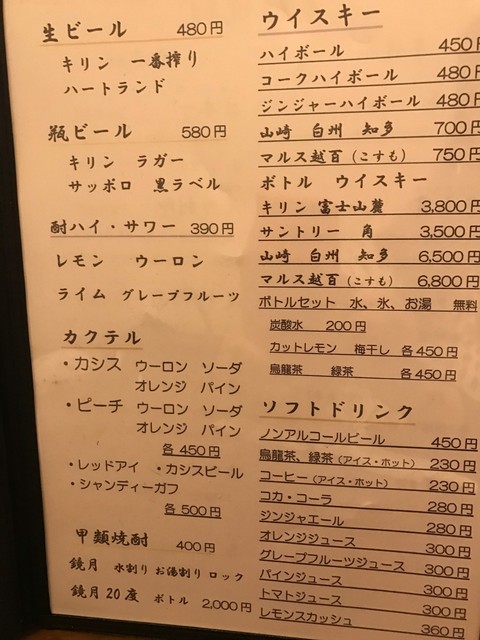 生ビール 480円
キリン 一番搾り
ハートランド
瓶ビール 580円
キリン ラガー
サッポロ 黒ラベル
酎ハイ・サワー 390円
レモン ウーロン
ライム グレープフルーツ
カクテル
・カシス ウーロン ソーダ
オレンジ パイン
・ピーチ ウーロン ソーダ
オレンジ パイン
各 450円
・レッドアイ ・カシスビール
・シャンディーガフ
各 500円
甲類焼酎 400円
鏡月 水割り お湯割り ロック
鏡月20度 ボトル 2,000円
ウイスキー
ハイボール 450円
コークハイボール 480円
ジンジャーハイボール 480円
山崎 白州 知多 700円
マルス越百(こすも) 750円
ボトル ウイスキー
キリン 富士山麓 3,800円
サントリー 角 3,500円
山崎 白州 知多 6,500円
マルス越百(こすも) 6,800円
ボトルセット 水、氷、お湯 無料
炭酸水 200円
カットレモン 梅干し 各450円
烏龍茶 緑茶 各450円
ソフトドリンク
ノンアルコールビール 450円
烏龍茶、緑茶(アイス・ホット) 230円
コーヒー(アイス・ホット) 230円
コカ・コーラ 280円
ジンジャエール 280円
オレンジジュース 300円
グレープフルーツジュース 300円
パインジュース 300円
トマトジュース 300円
レモンスカッシュ 360円